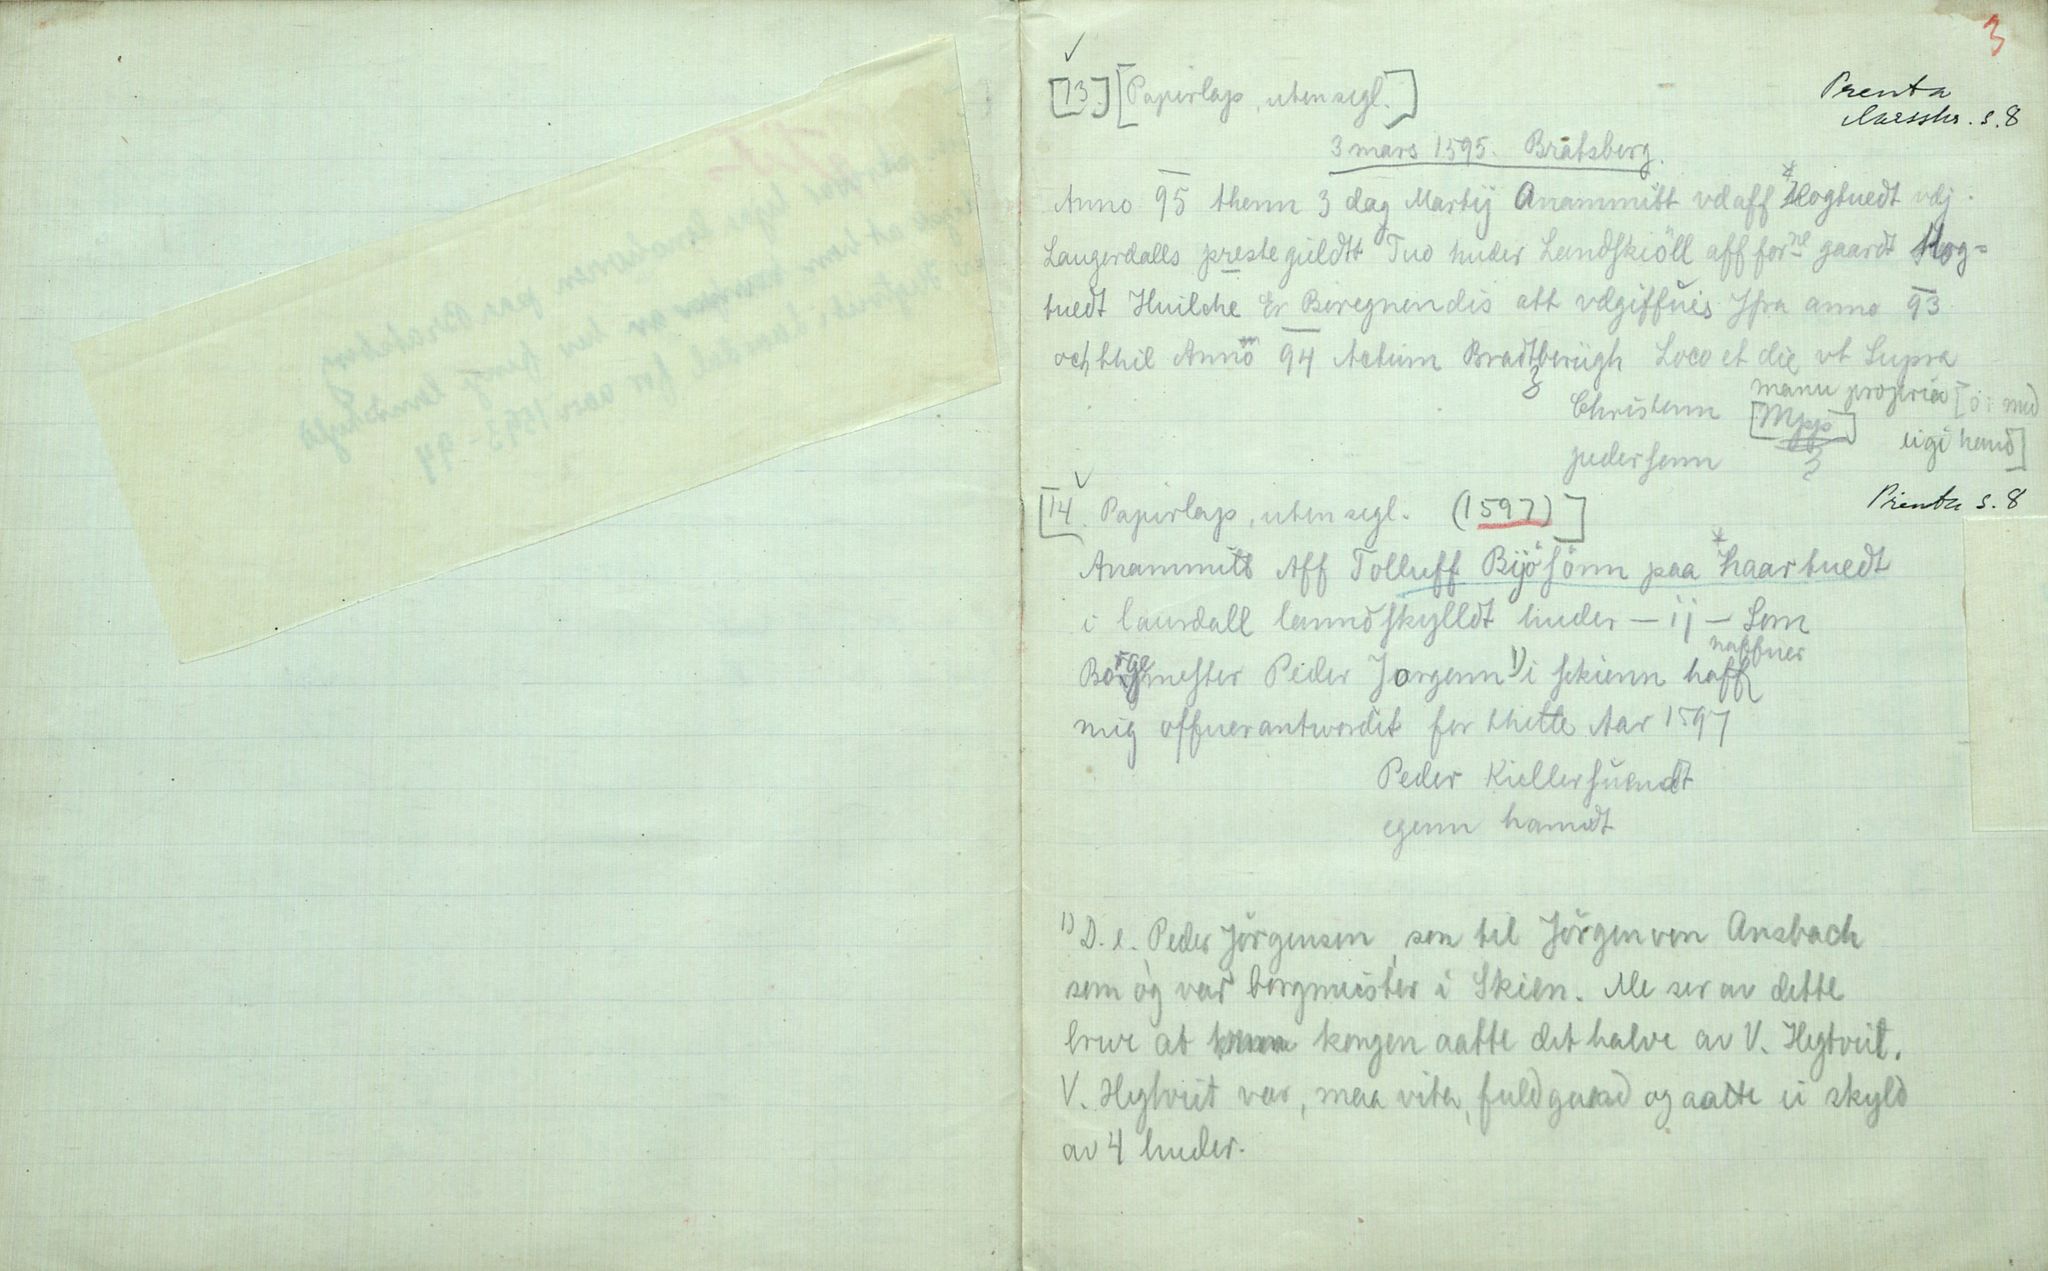 3
[13.] [Papirlap, uten segl.]
Prenta
Aarsskr. s. 8
3 mars 1595. Bratsberg.
Anno 95 thenn 3 dag Martij Anammitt vdaff *Hogtuedt vdj
Laugerdalls prestegieldtt Tuo huder Landskiöll aff for ne gaardt Hog=
tuedt Huilche Er Beregnendis att vdgiffues Jfra anno 93
och thil Anno 94 Actum Bradtberiigh Loco et die vt Supra
manu propria [ɔ: med
Christenn [Mpp] eigi hand]
pedersenn
[14. Papirlap, uten segl. (1597)]
Prenta s. 8
Anammitt Aff Tolluff Bijösönn paa *haartuedt
i laurdall lanndskylldt huder – ij – Som
naffuer
Borgemester Peder Jorgenn 1) i skienn haff
mig offuerantwordit for thette Aar 1597
Peder Kiellersuendt
egenn hanndt
1) D. e. Peder Jörgensen, son til Jörgen von Ansbach
som òg var borgmeister i Skien. Me ser av dette
breve at kongen aatte det halve av V. Hegtveit.
V. Hegtveit var, maa vita, fuldgard og aatte ei skyld
av 4 huder.